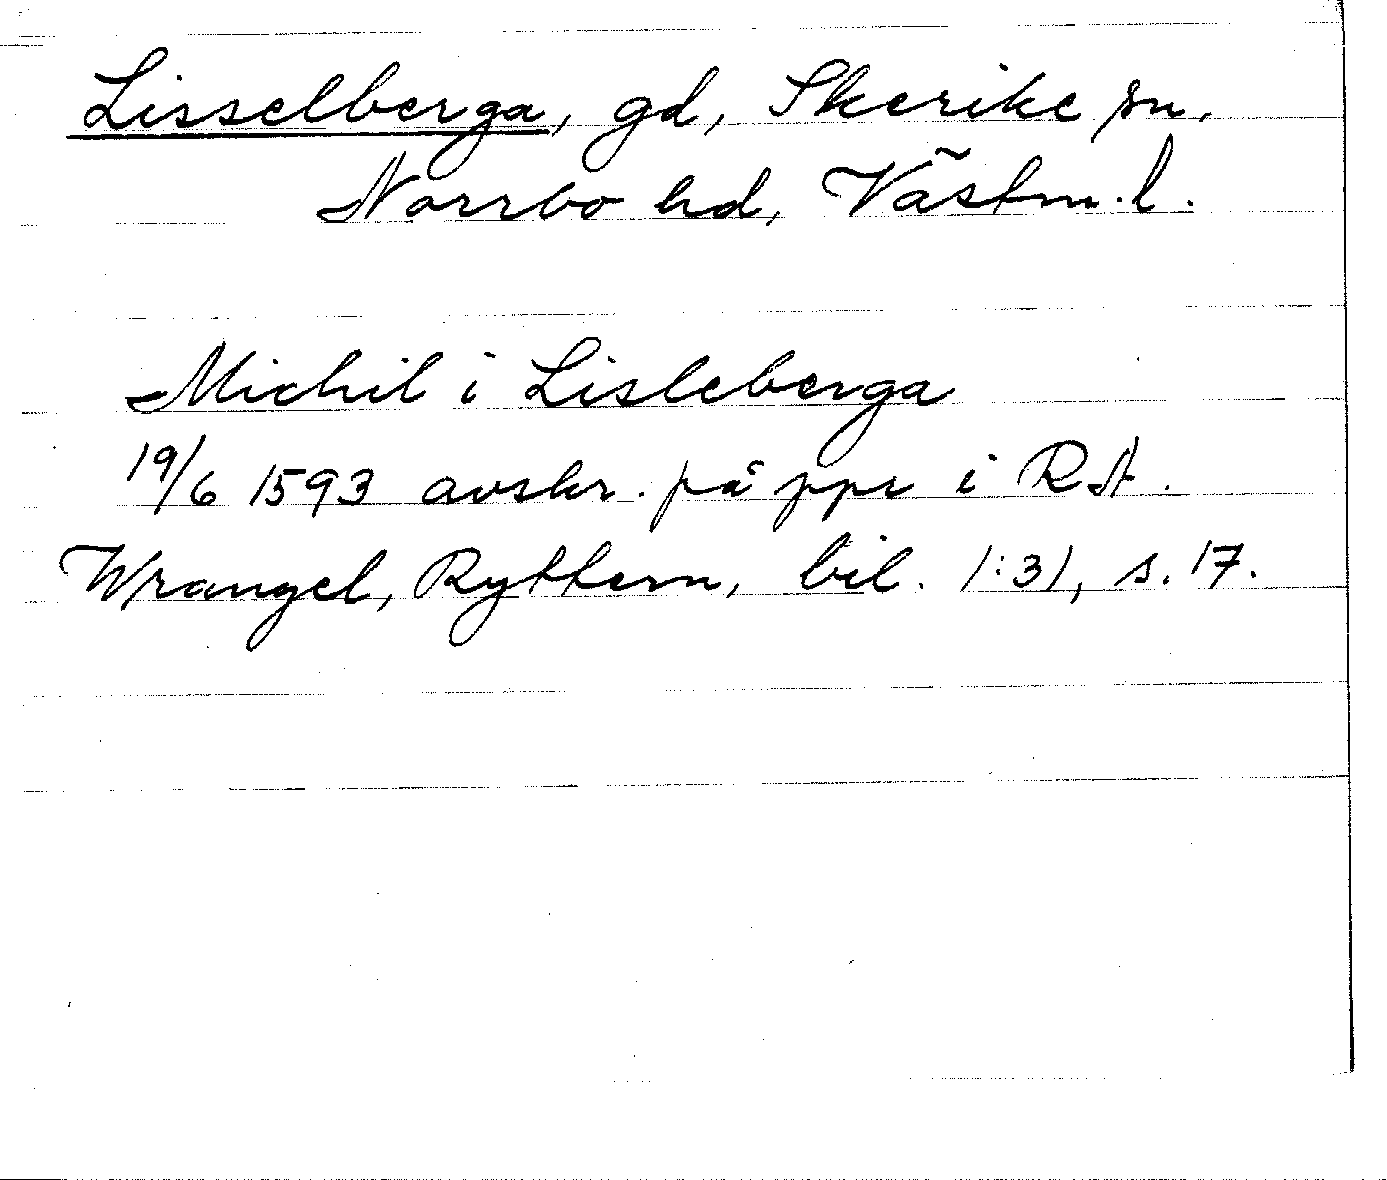 Lisselberga, gd, Skerike sn.
Norrbo hd, Västm. l.
Michil i Lisleberga
19/6 1593 avskr. på ppr i RA.
Wrangel, Ryttern, bil. 1:31, s. 17.